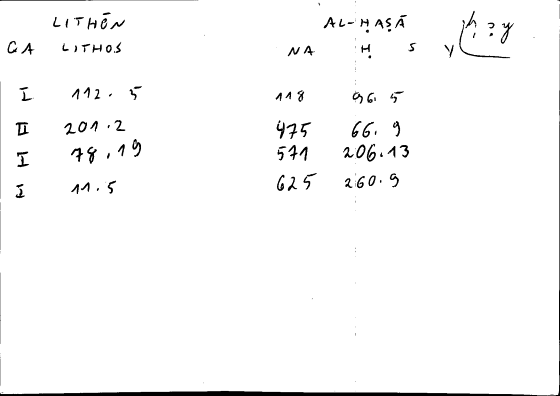 LITHŌN AL-ḤAṢĀ ḥ ? y
GA LITHOS NA Ḥ S Y
I 112. 5 118 96. 5
II 201. 2 475 66. 9
I 78, 19 571 206. 13
I 11. 5 625 260. 9